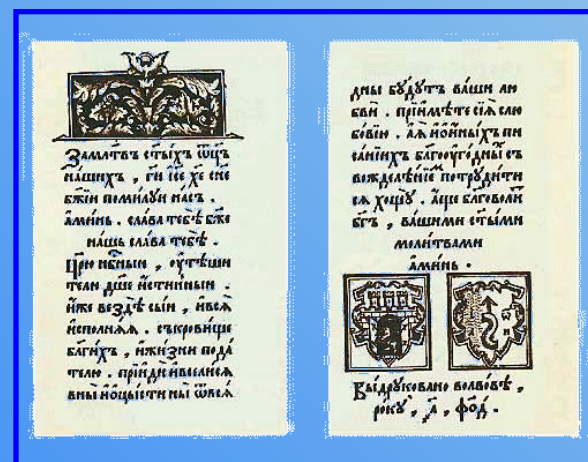 Замл҃твъ ст҃ы́хъ ѿц҃ъ
нашихъ , гі҃ іс҃е х҃е сн҃е
бж҃їи помилꙋи насъ .
а҆́минь . сла́ва тебѣ̀ бж҃е
нашь сла́ва тебѣ̀ .
Цр҃ю нб҃ныи , ѹ҆тѣ́ши
телю дш҃е и҆́стинныи .
и҆́же вездѣ̀ сыи , и҆всѧ̀
и҆сполнѧѧ . съкровище
бл҃ги́хъ , и҆жи́зни пода́
телю . прїидѝ и҆вселисѧ
вны̀ и҆ѡ҆цы́сти ны̀ ѿвсѧ́
дны бꙋ́дꙋтъ ва́ши лю
бвѝ . прїимѣ́те сїѧ̀ слю
бо́вїю . а҆́ѧ и҆ѡ҆и҆ны́хъ пи
са́нїихъ бл҃гоѹ҆го́дныⷯ съ
вожделѣ́нїеⷨ потрꙋди́ти
сѧ хощꙋ̀ . а҆́ще бл҃говоли́ⷮ
бг҃ъ , ва́шими ст҃ы́ми
моли́твами
а҆́минь .
Вы́дрꙋковано волвовѣ ,
ро́кꙋ , ҂а҃ , фо҃д .